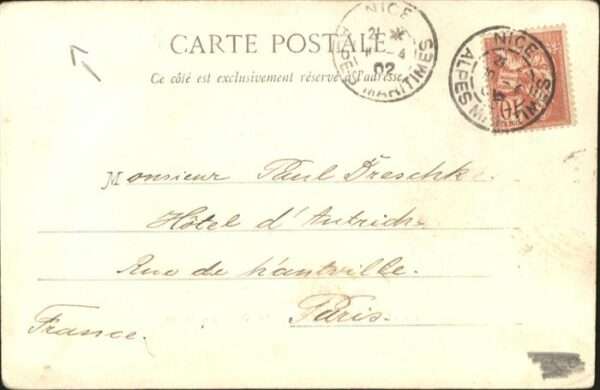 CARTE POSTALE
Ce côté est exclusivement réservé à l'adresse
NICE
21
4
02
ALPES MARITIMES
NICE
ALPES MARITIMES
10
Monsieur Paul Dreschke.
Hôtel d'Autriche
Rue de hautville.
Paris.
France.